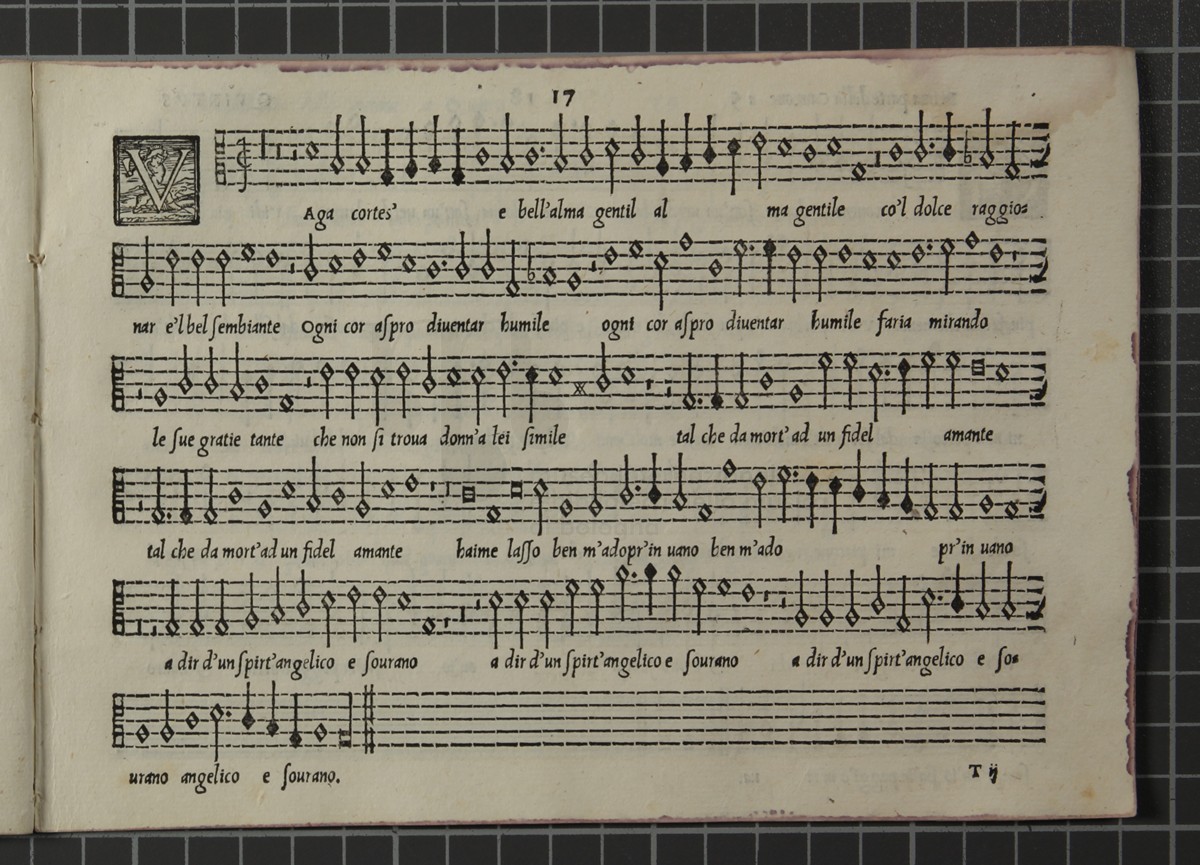 17
VAga cortes' e bell'alma gentil al ma gentile co'l dolce raggio-
nar e'l bel ſembiante Ogni cor aſpro diuentar humile ogni cor aſpro diuentar humile faria mirando
le ſue gratie tante che non ſi troua donn'a lei ſimile tal che da mort'ad un fidel amante
tal che da mort'ad un fidel amante haime laſſo ben m'adopr'in uano ben m'ado pr'in uano
a dir d'un ſpirt'angelico e ſourano a dir d'un ſpirt'angelico e ſourano a dir d'un ſpirt'angelico e ſo-
urano angelico e ſourano.
T ij